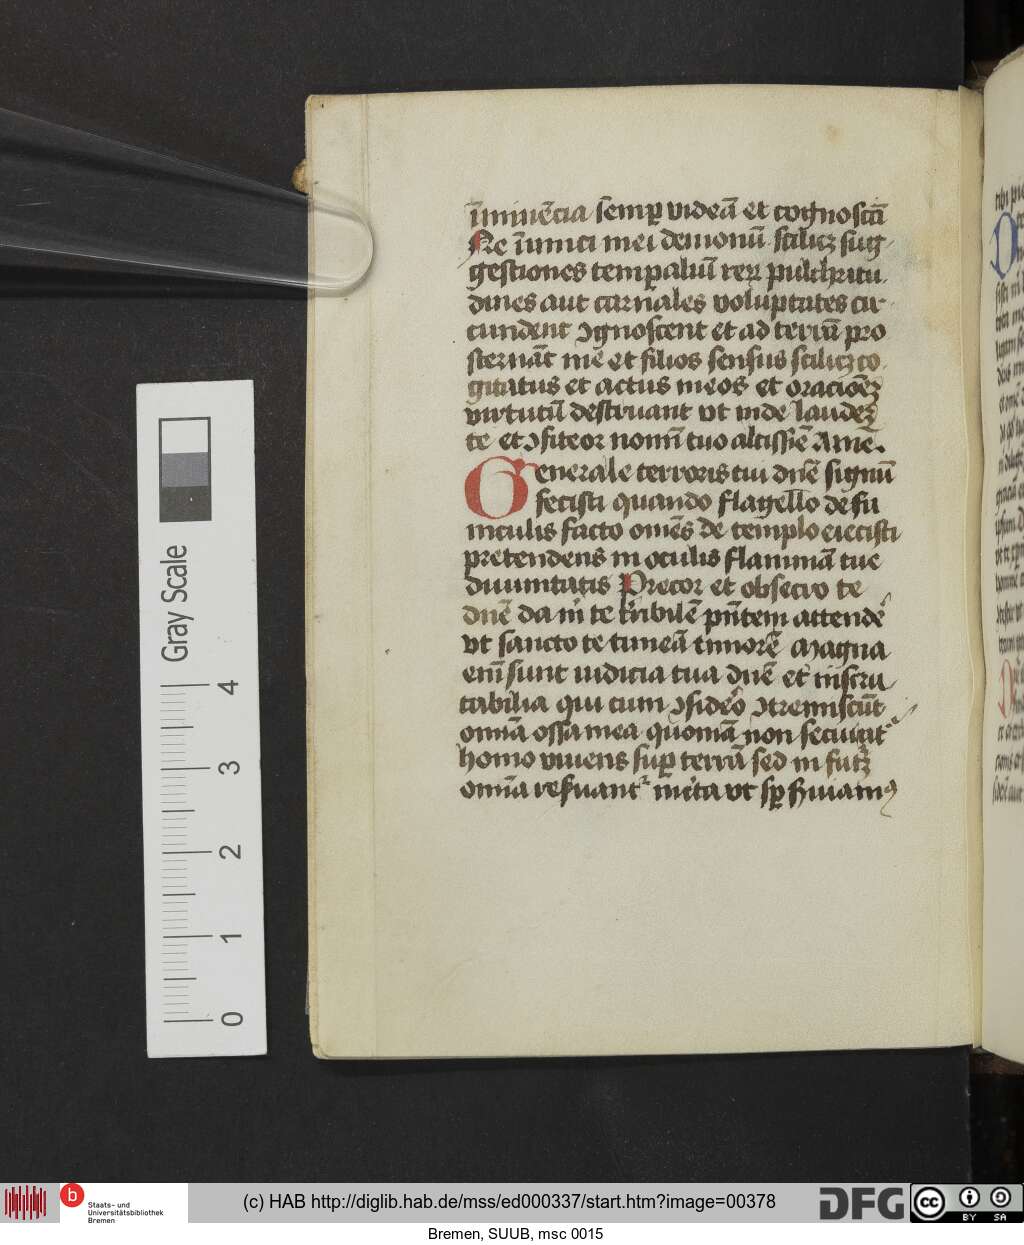 īminēcia semꝑ videā et cognoscā
Ne īimici mei demonū scilicꝫ sug
gestiones temꝑaliū reꝝ pulchritu
dines aut carnales voluptates cir
cundent ꝯgnoscent et ad terrā pro
sternāt me et filios sensus scilicꝫ co
gitatus et actus meos et oracioēꝫ
virtutū destruant vt inde laudeꝫ
te et ꝯfiteor nomī tuo altissīe Amē.
Generale terroris tui dnē signū
fecisti quando flagello de fu
niculis facto omēs de templo eiecisti
pretendens in oculis flammā tue
diuinitatis Precor et obsecro te
dnē da m̄ te tribilē pn̄tem attendē
vt sancto te timeā timorē Magna
em̄ sunt iudicia tua dnē et inscru
tabilia qui cum ꝯsidero ꝯtremiscūt
omīa ossa mea quoniā non
homo viuens suꝑ terrā sed in futꝝ
omīa resuant᷑ incta vt sꝑ
Gray Scale
4
3
2
1
0
b
Staats- und
Universitätsbibliothek
Bremen
(c) HAB http://diglib.hab.de/mss/ed000337/start.htm?image=00378
DFG
cc
BY SA
Bremen, SUUB, msc 0015